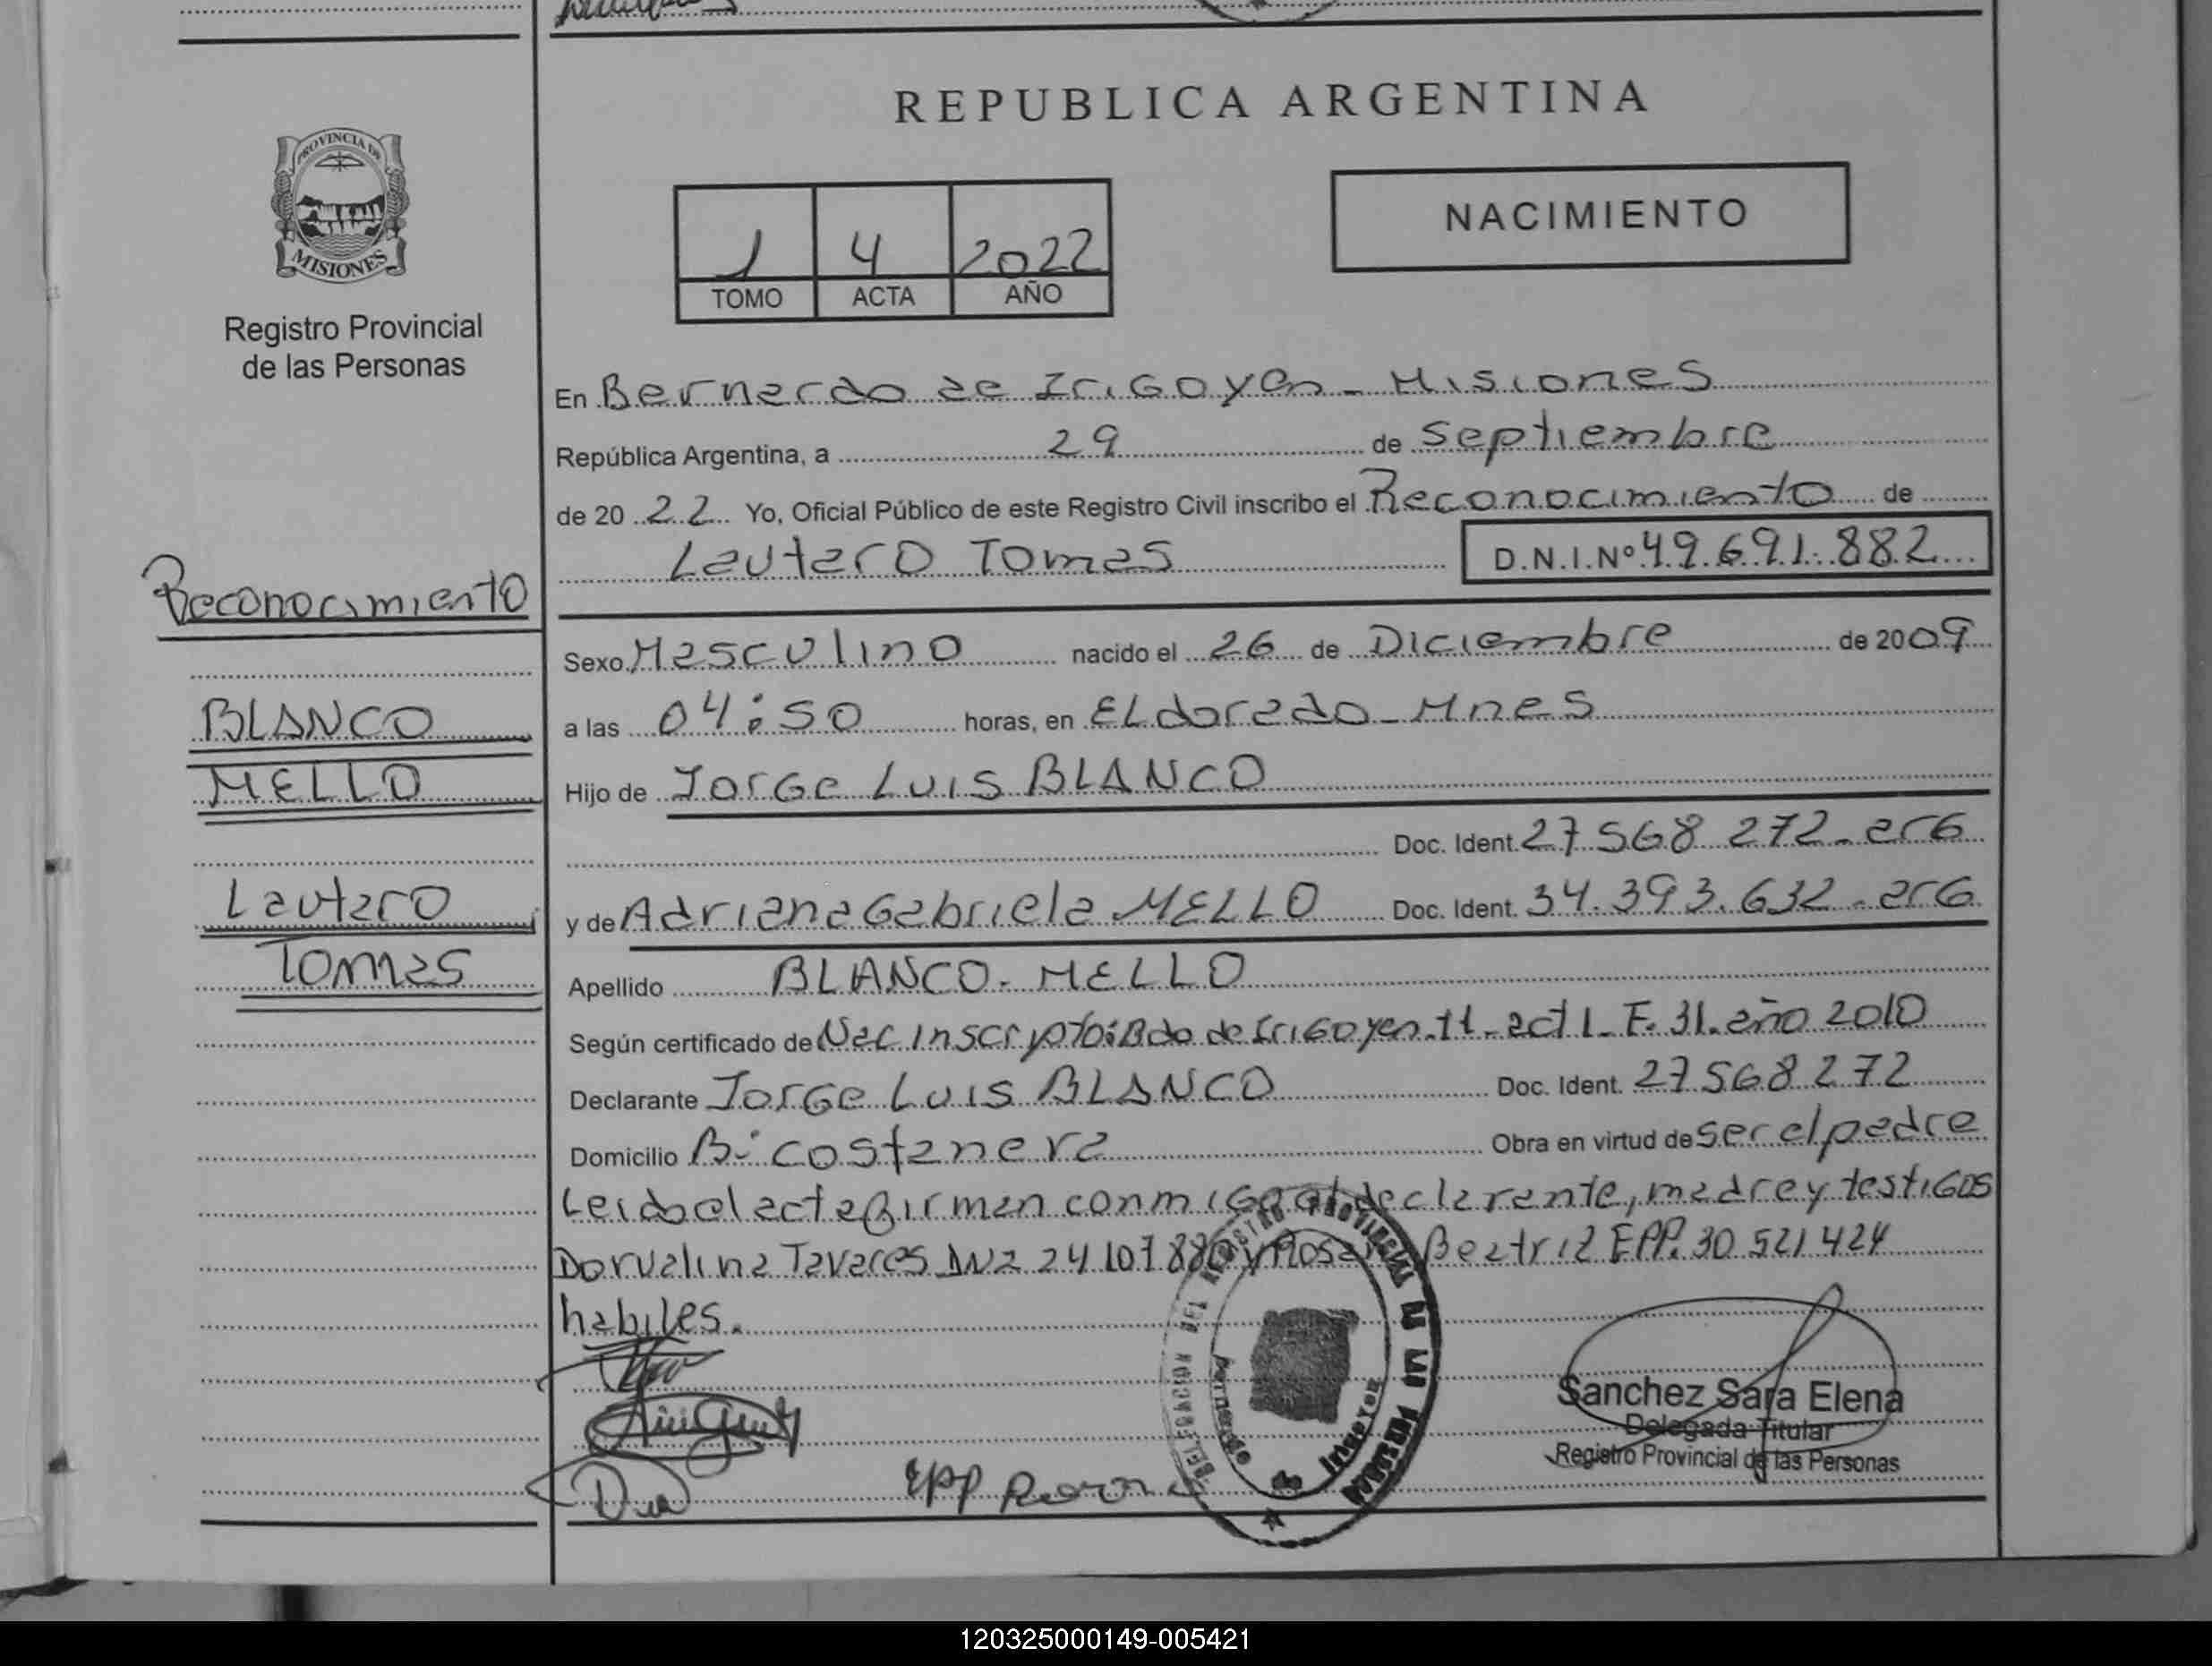 REPUBLICA ARGENTINA
PROVINCIA DE
MISIONES
Registro Provincial
de las Personas
1 4 2022
TOMO ACTA AÑO
NACIMIENTO
En Bernardo de Irigoyen - Misiones
República Argentina, a 29 de Septiembre
de 20 22 Yo, Oficial Público de este Registro Civil inscribo el Reconocimiento de
Lautaro Tomas D.N.I.Nº 49.691.882
Reconocimiento
BLANCO
MELLO
Lautaro
Tomas
Sexo Masculino nacido el 26 de Diciembre de 2009
a las 04:50 horas, en ELdorado - Mnes
Hijo de Jorge Luis BLANCO
Doc. Ident. 27568272 - arG
y de Adriana Gabriela MELLO Doc. Ident. 34.393.632 - arG
Apellido BLANCO - MELLO
Según certificado de Nac inscrypto: Bdo de Irigoyen - t1 - act 1 - F. 31. año 2010
Declarante Jorge Luis BLANCO Doc. Ident. 27568272
Domicilio B: costanera Obra en virtud de ser el padre
Leido el acta firman conmigo el declarante, madre y testigos
Dorvalina Tavares 24 107 880 y Beatriz EPP. 30 521 424
habiles.
EPP
REGISTRO PROVINCIAL DE LAS PERSONAS
Bernardo de Irigoyen
Sanchez Sara Elena
Delegada Titular
Registro Provincial de las Personas
120325000149-005421